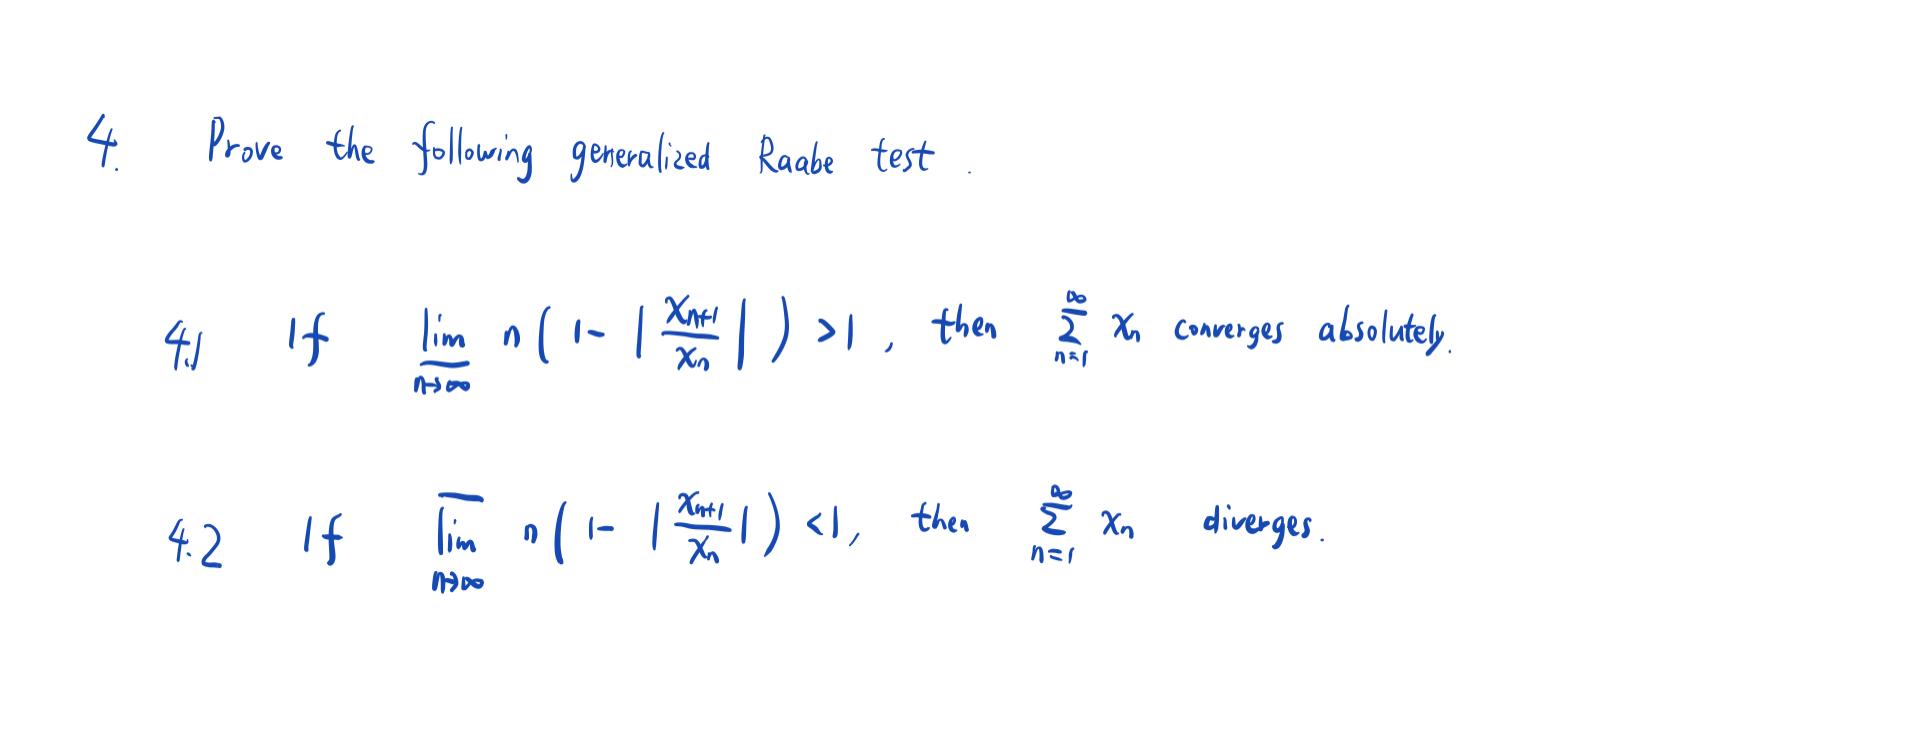 4. Prove the following generalized Raabe test.
4.1 If $\varliminf_{n \to \infty} n \left( 1 - \left| \frac{x_{n+1}}{x_n} \right| \right) > 1$, then $\sum_{n=1}^{\infty} x_n$ converges absolutely.
4.2 If $\varlimsup_{n \to \infty} n \left( 1 - \left| \frac{x_{n+1}}{x_n} \right| \right) < 1$, then $\sum_{n=1}^{\infty} x_n$ diverges.